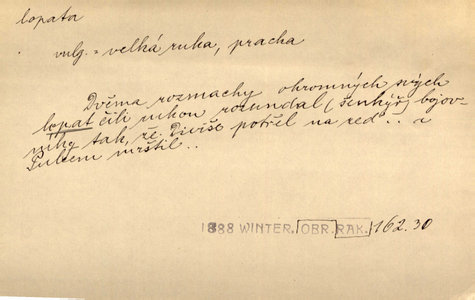 lopata
vulg. = velká ruka, pracha
Dvěma rozmachy ohromných svých
lopat čili rukou rozundal (šenkýř) bojov-
níky tak, že. Diviše potřel na zed'.. a
Pulcem mrštil..
1888 WINTER. OBR. RAK. 162.30